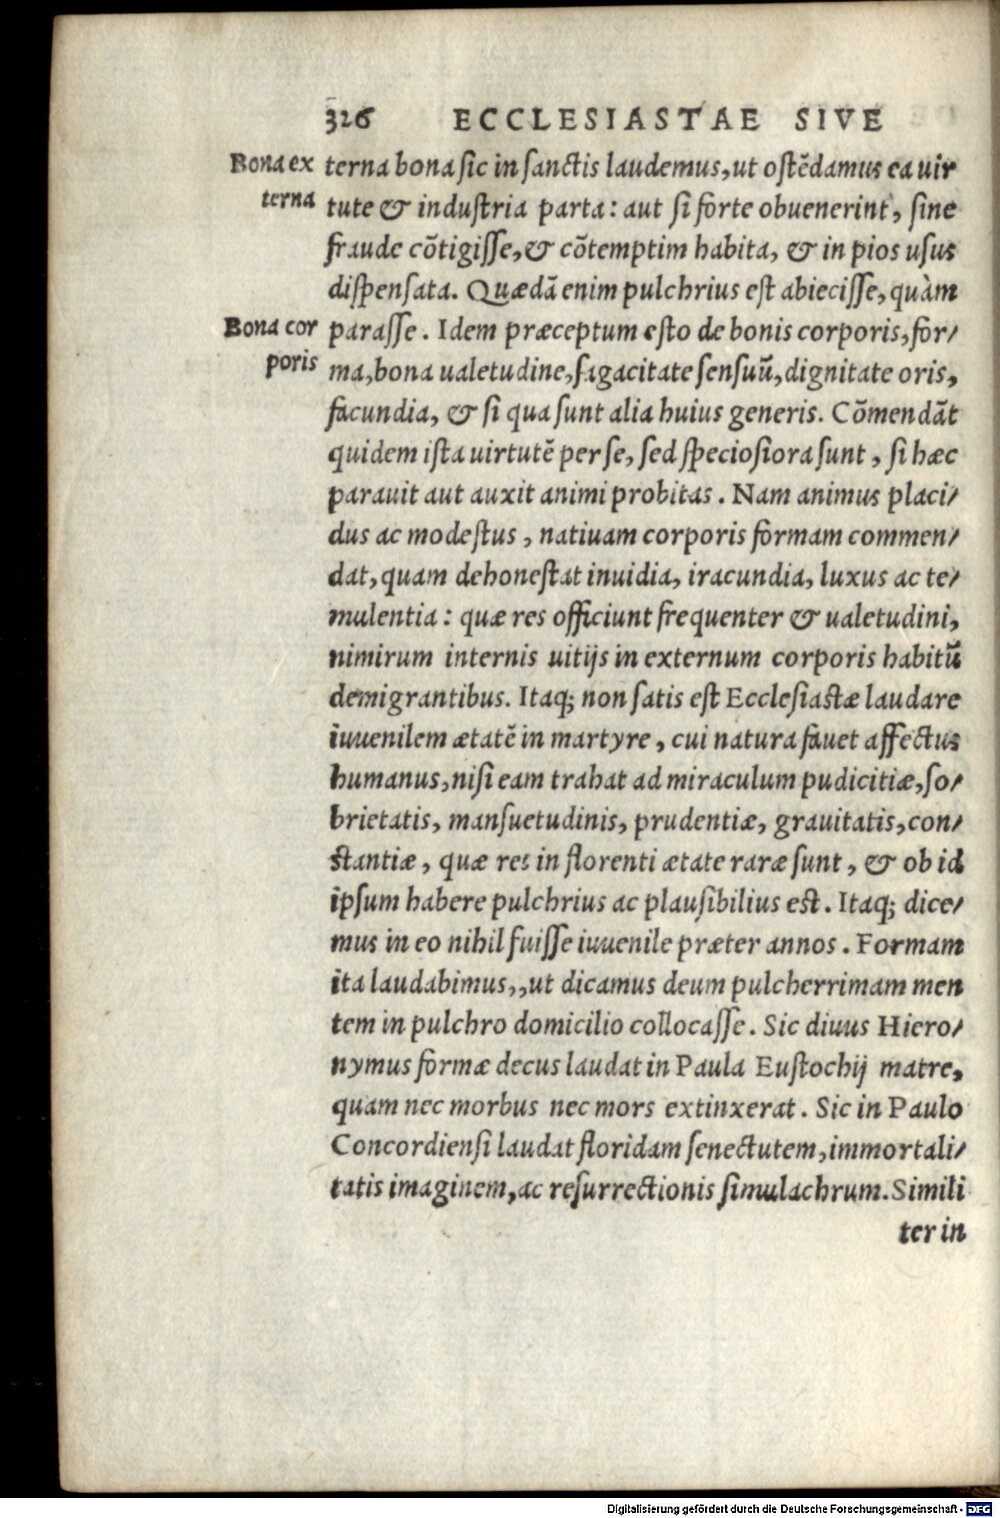 326 ECCLESIASTAE SIVE
Bona ex
terna
terna bona sic in sanctis laudemus, ut ostẽdamus ea uir
tute & industria parta: aut si forte obuenerint, sine
fraude cõtigisse, & cõtemptim habita, & in pios usus
dispensata. Quædã enim pulchrius est abiecisse, quàm
Bona cor
poris
parasse. Idem præceptum esto de bonis corporis, for/
ma, bona ualetudine, sagacitate sensuũ, dignitate oris,
facundia, & si qua sunt alia huius generis. Cõmendãt
quidem ista uirtutẽ per se, sed speciosiora sunt, si hæc
parauit aut auxit animi probitas. Nam animus placi/
dus ac modestus, natiuam corporis formam commen/
dat, quam dehonestat inuidia, iracundia, luxus ac te/
mulentia: quæ res officiunt frequenter & ualetudini,
nimirum internis uitijs in externum corporis habitũ
demigrantibus. Itaq; non satis est Ecclesiastæ laudare
iuuenilem ætatẽ in martyre, cui natura fauet affectus
humanus, nisi eam trahat ad miraculum pudicitiæ, so/
brietatis, mansuetudinis, prudentiæ, grauitatis, con/
stantiæ, quæ res in florenti ætate raræ sunt, & ob id
ipsum habere pulchrius ac plausibilius est. Itaq; dice/
mus in eo nihil fuisse iuuenile præter annos. Formam
ita laudabimus,, ut dicamus deum pulcherrimam men
tem in pulchro domicilio collocasse. Sic diuus Hiero/
nymus formæ decus laudat in Paula Eustochij matre,
quam nec morbus nec mors extinxerat. Sic in Paulo
Concordiensi laudat floridam senectutem, immortali/
tatis imaginem, ac resurrectionis simulachrum. Simili
ter in
Digitalisierung gefördert durch die Deutsche Forschungsgemeinschaft - DFG